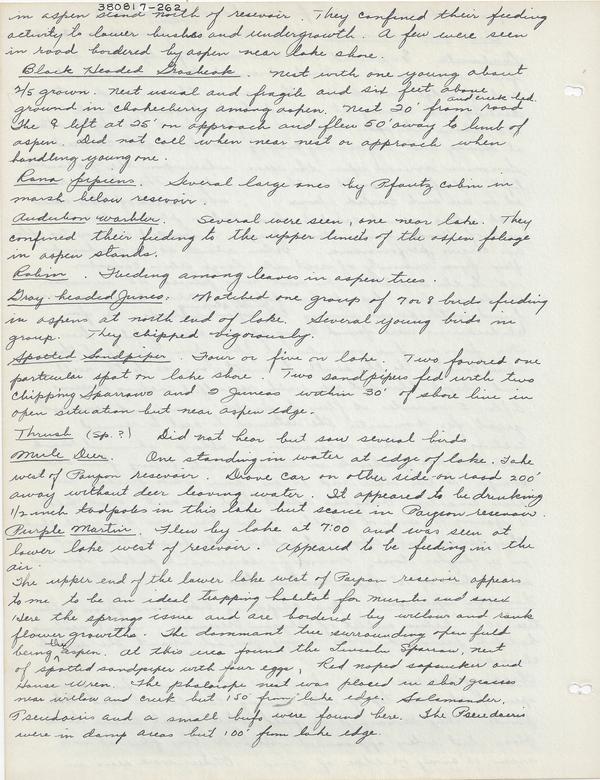 380817-262
in aspen stand north of resevoir. They confined their feeding
activity to lower bushes and undergrowth. A few were seen
in road bordered by aspen near lake shore.
Black Headed Grosbeak. Nest with one young about
2/5 grown. Nest usual and fragile and six feet above
ground in chokecherry among aspen. Nest 20' from road and creek bed.
The ♀ left at 25' on approach and flew 50' away to limb of
aspen. Did not call when near nest or approach when
handling young one.
Rana pipiens. Several large ones by Pfautz cabin in
marsh below resevoir.
Audubon warbler. Several were seen, one near lake. They
confined their feeding to the upper limits of the aspen foliage
in aspen stands.
Robin. Feeding among leaves in aspen trees.
Gray-headed Junco: Watched one group of 7 or 8 birds feeding
in aspens at north end of lake. Several young birds in
group. They chipped vigorously.
Spotted Sandpiper. Four or five on lake. Two favored one
particular spot on lake shore. Two sandpipers fed with two
Chipping Sparrows and 2 Juncos within 30' of shore line in
open situation but near aspen edge.
Thrush (sp.?) Did not hear but saw several birds
Mule Deer. One standing in water at edge of lake. Lake
west of Payson resevoir. Drove car on other side on road 200'
away without deer leaving water. It appeared to be drinking
1/2 inch tadpoles in this lake but scarce in Payson resevoir.
Purple Martin. Flew by lake at 7:00 and was seen at
lower lake west of resevoir. Appeared to be feeding in the
air.
The upper end of the lower lake west of Payson resevoir appears
to me to be an ideal trapping habitat for Microtus and sorex
Here the springs issue and are bordered by willow and rank
flower growths. The dominant tree surrounding open field
being the aspen. At this area found the Lincoln Sparrow, nest
of spotted sandpiper with four eggs, Red naped sapsucker and
House Wren. The phalarope nest was placed in short grasses
near willow and creek but 150' from lake edge. Salamander,
Pseudacris and a small bufo were found here. The Pseudacris
were in damp areas but 100' from lake edge.